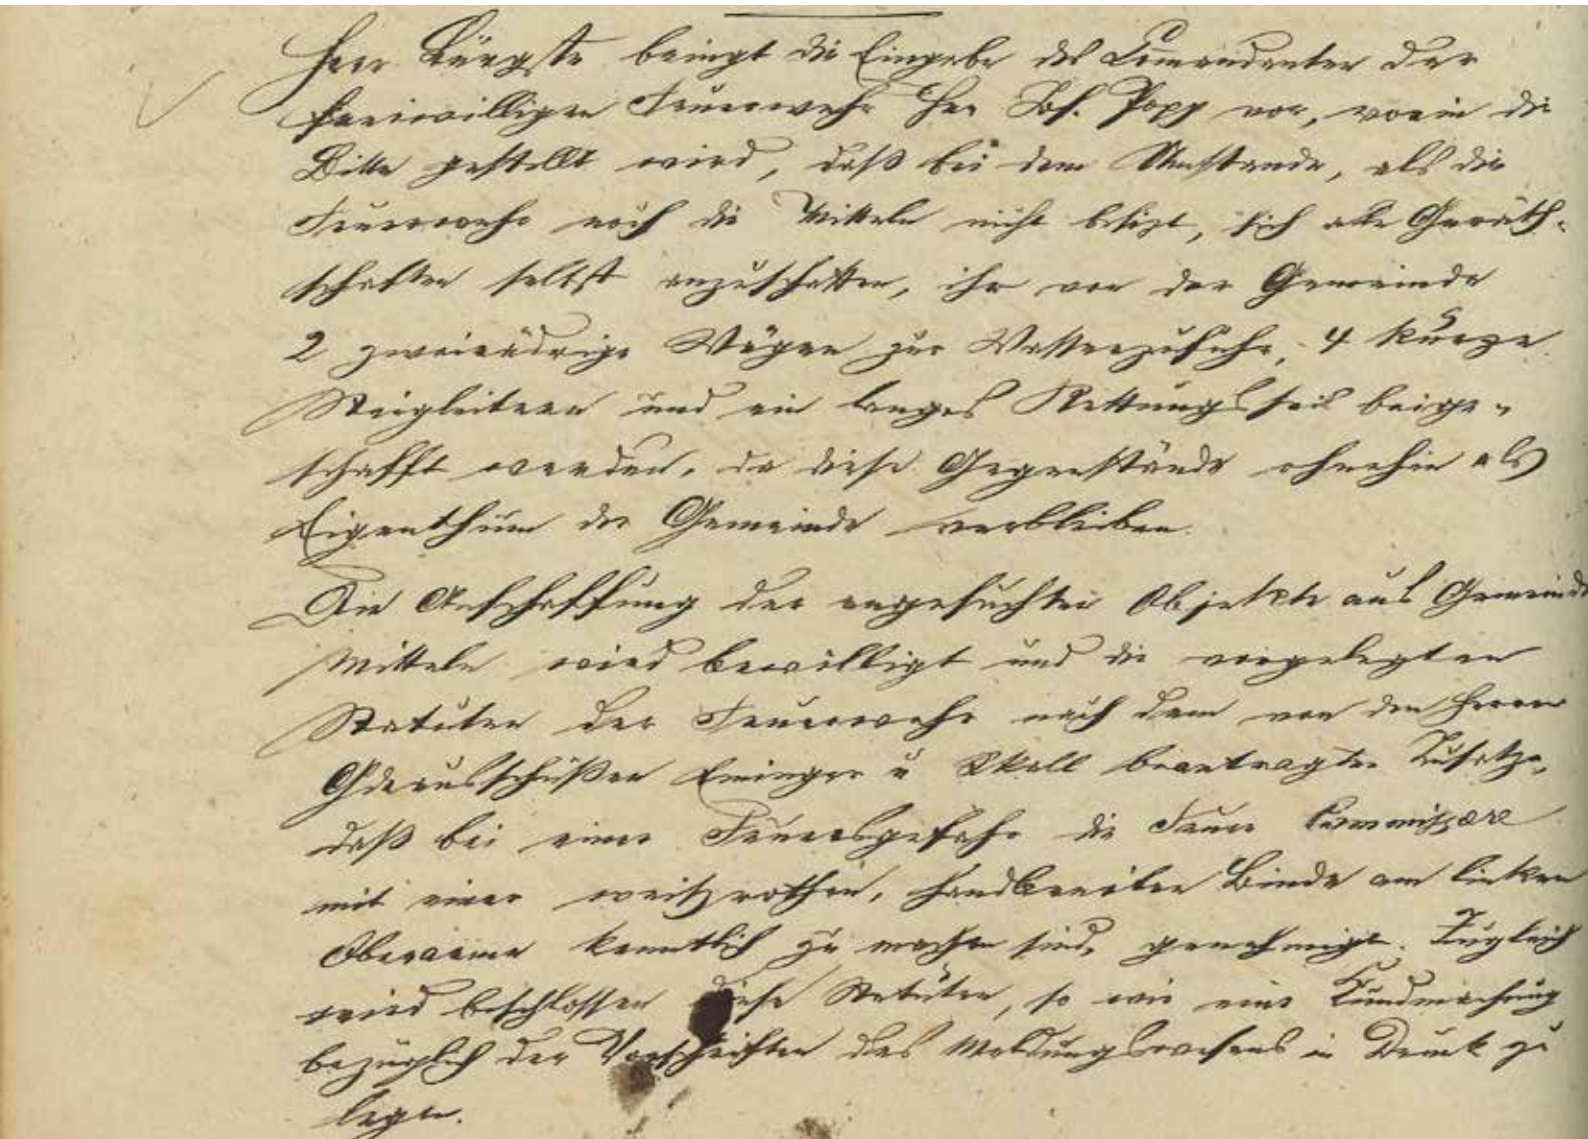 Herr Bürgstr bringt die Eingabe des Comandanten der
freiwilligen Feuerwehr Her Jos. Popp vor, worin die
Bitte gestellt wird, daß bei dem Umstande, als die
Feuerwehr noch die Mitteln nicht besizt, sich alle Geräth-
schaften selbst anzuschaffen, ihr von der Gemeinde
2 zweirädrige Wägen zur Wasserzufuhr, 4 kurze
Steigleitern und ein langes Rettungsseil beige-
schafft werden, da diese Gegenstände ohnehin als
Eigenthum der Gemeinde verbleiben.
Die Anschaffung der angesuchten Objekte aus Gemeinde
Mitteln wird bewilligt und die vorgelegten
Statuten der Feuerwehr nach dem von den Herren
Gdeausschüßen Eminger u Skall beantragten Zusatze,
daß bei einer Feuersgefahr die Feuer Commissäre
mit einer weißrothen, handbreiten Binde am linken
Oberarme kenntlich zu machen sind, genehmigt. Zugleich
wird beschlossen diese Statuten, so wie eine Kundmachung
bezüglich der Vorschriften des Meldungswesens in Druck zu
legen.